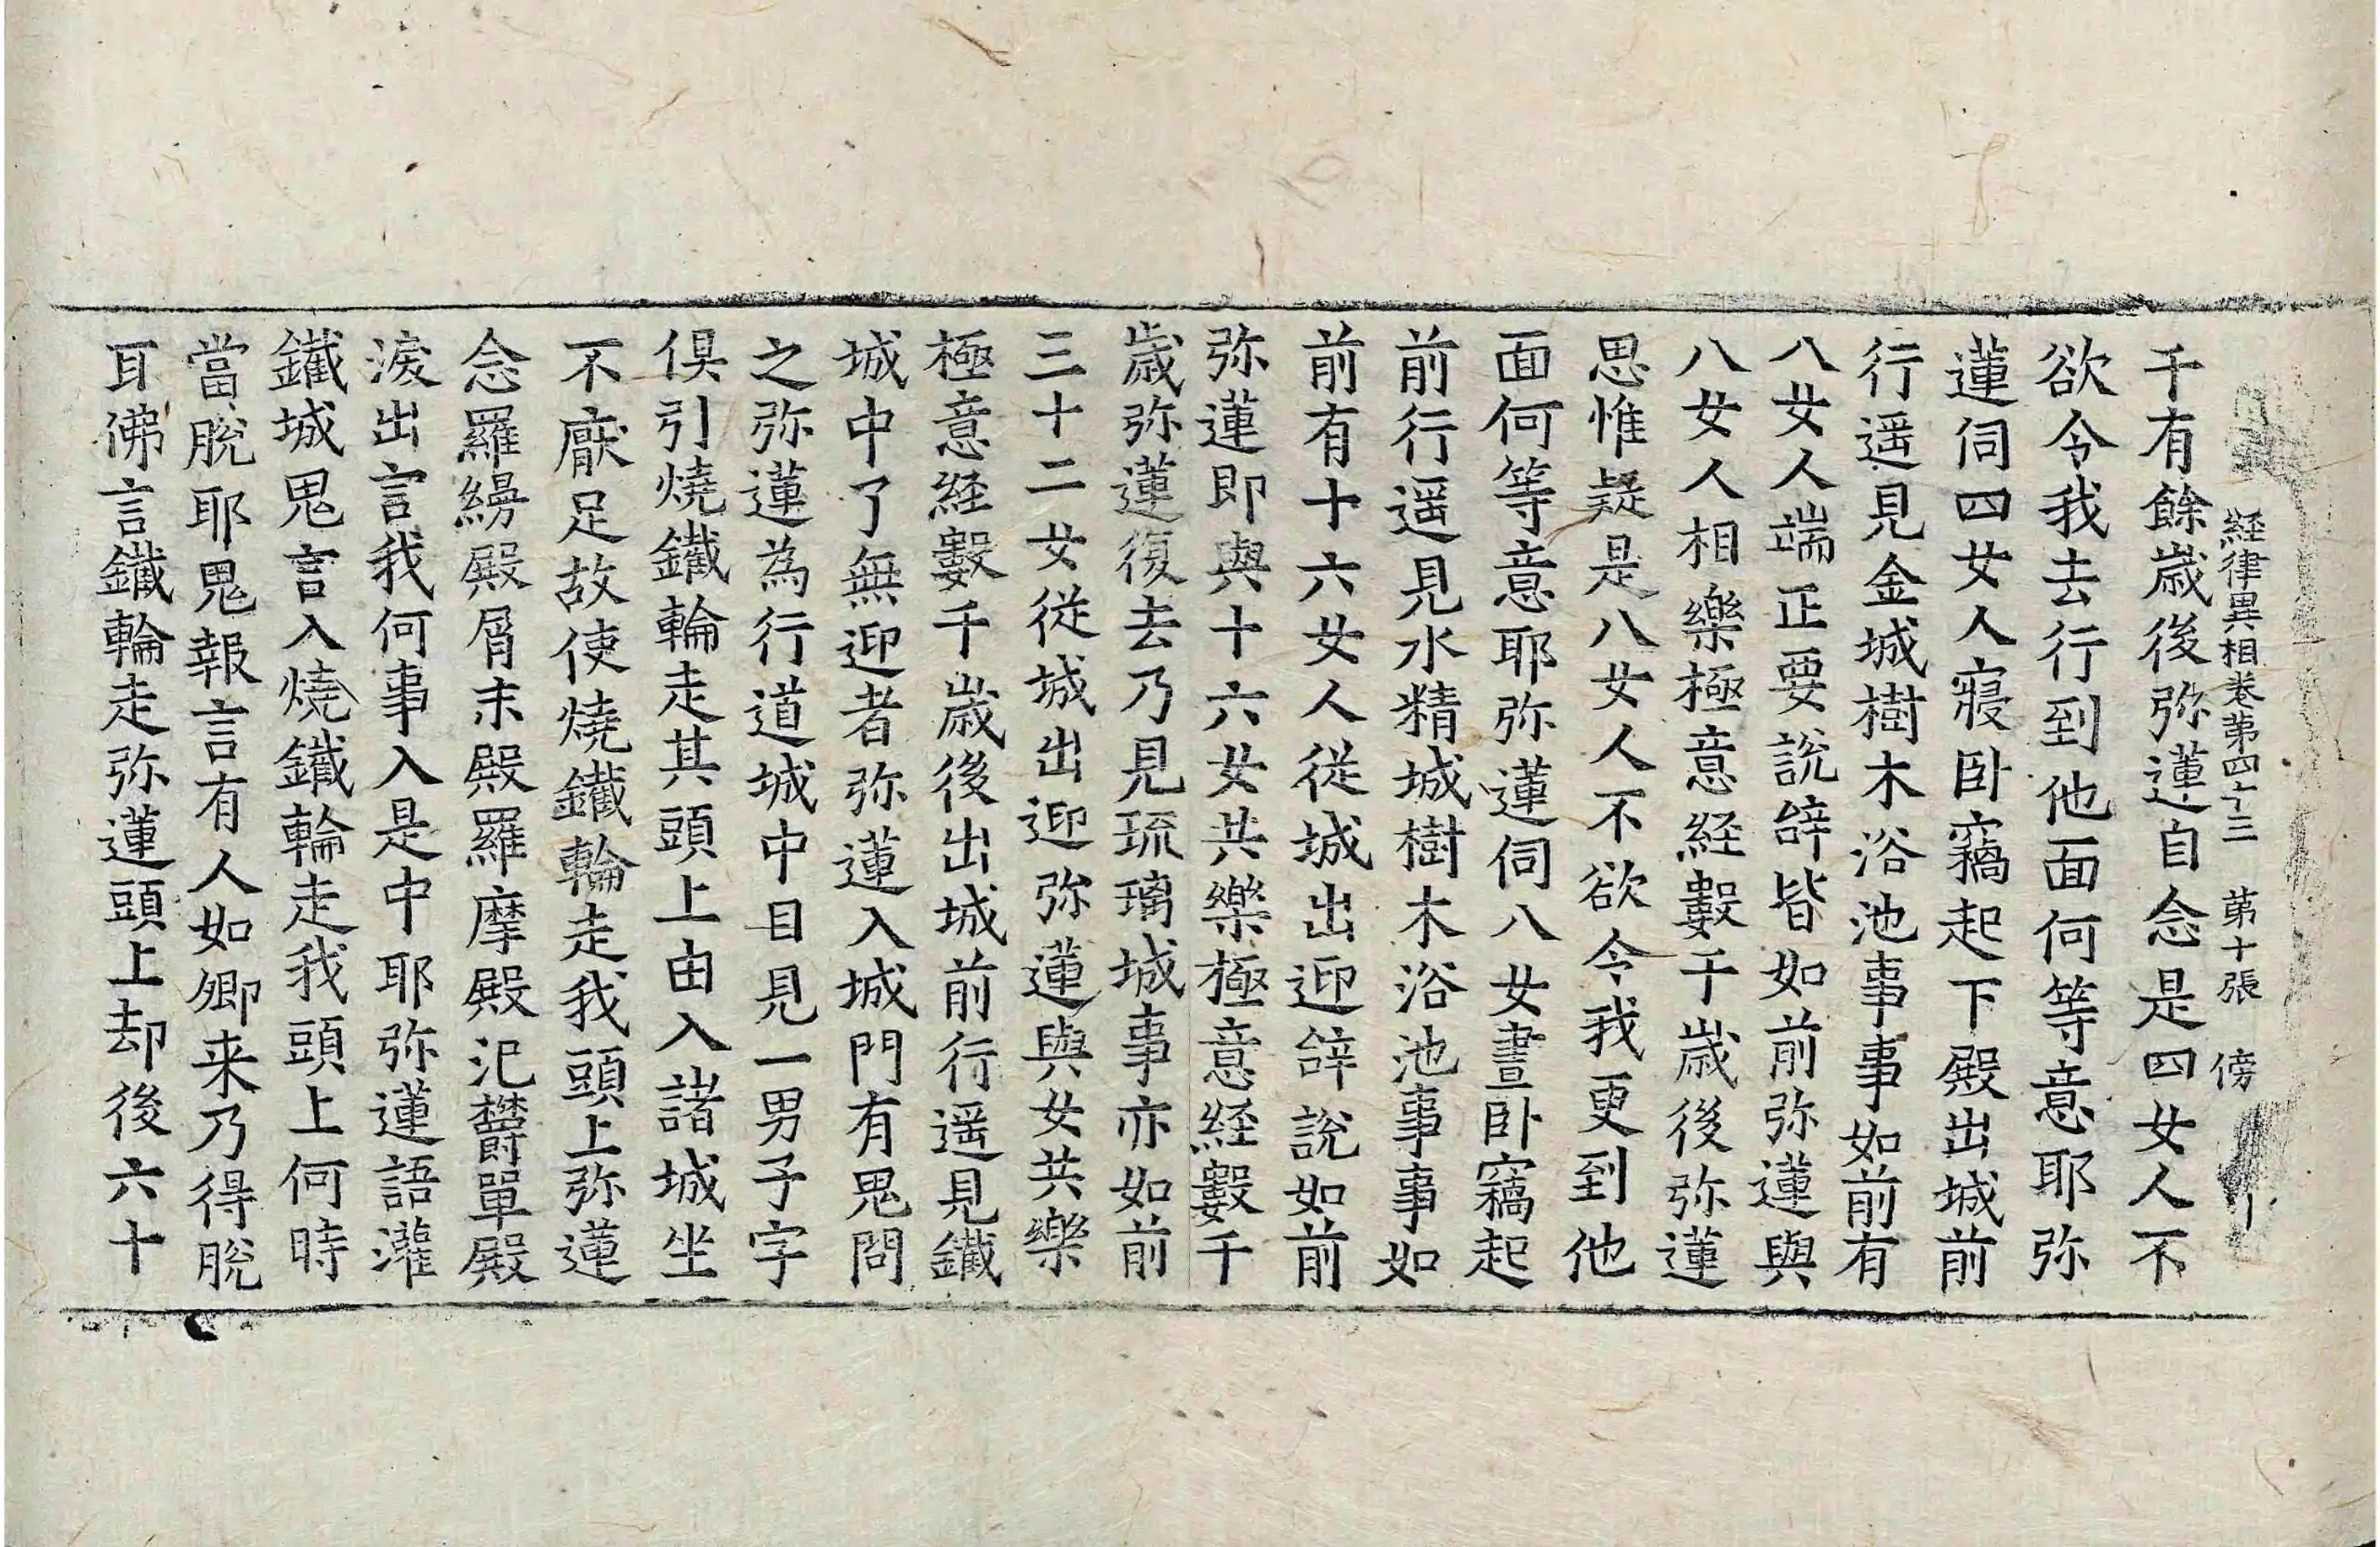 経律異相卷第四十三 第十張 傍
千有餘歲後弥蓮自念是四女人不
欲令我去行到他面何等意耶弥
蓮伺四女人寢卧竊起下殿出城前
行遥見金城樹木浴池事事如前有
八女人端正要說辝皆如前弥蓮與
八女人相樂極意経數千歲後弥蓮
思惟疑是八女人不欲令我更到他
面何等意耶弥蓮伺八女晝卧竊起
前行遥見水精城樹木浴池事事如
前有十六女人從城出迎辝說如前
弥蓮即與十六女共樂極意経數千
歲弥蓮復去乃見琉璃城事亦如前
三十二女從城出迎弥蓮與女共樂
極意経數千歲後出城前行遥見鐵
城中了無迎者弥蓮入城門有鬼問
之弥蓮為行道城中目見一男子字
俱引燒鐵輪走其頭上由入諸城坐
不厭足故使燒鐵輪走我頭上弥蓮
念羅縵殿屑末殿羅摩殿氾欝單殿
淚出言我何事入是中耶弥蓮語灌
鐵城鬼言入燒鐵輪走我頭上何時
當脫耶鬼報言有人如卿来乃得脫
耳佛言鐵輪走弥蓮頭上却後六十